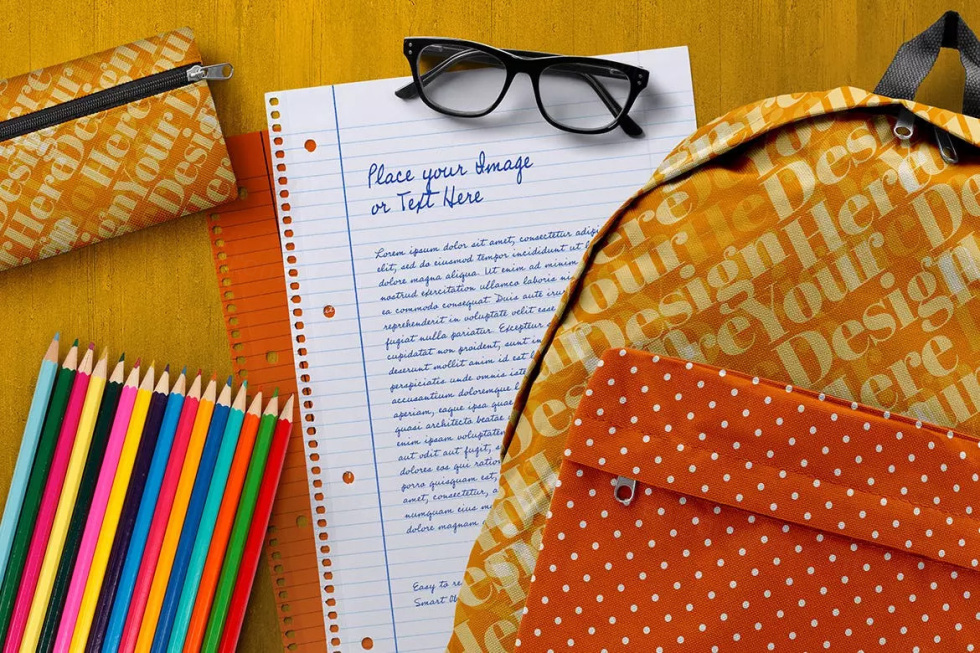 Place your Image
or Text Here
Lorem ipsum dolor sit amet, consectetur adipi
elit, sed do eiusmod tempor incididunt ut
dolore magna aliqua. Ut enim ad minim
nostrud exercitation ullamco laboris ni
ea commodo consequat. Duis aute iru
reprehenderit in voluptate velit esse
fugiat nulla pariatur. Excepteur
cupidatat non proident, sunt in
deserunt mollit anim id est
perspiciatis unde omnis iste
accusantium doloremque
aperiam, eaque ipsa quae
quasi architecto beatae
enim ipsam voluptatem
aut odit aut fugit,
dolores eos qui ration
porro quisquam est,
amet, consectetur, a
numquam eius m
dolore magnam
Easy to re
Smart Ob
Your Design Here
Design Here
Your Design
Here